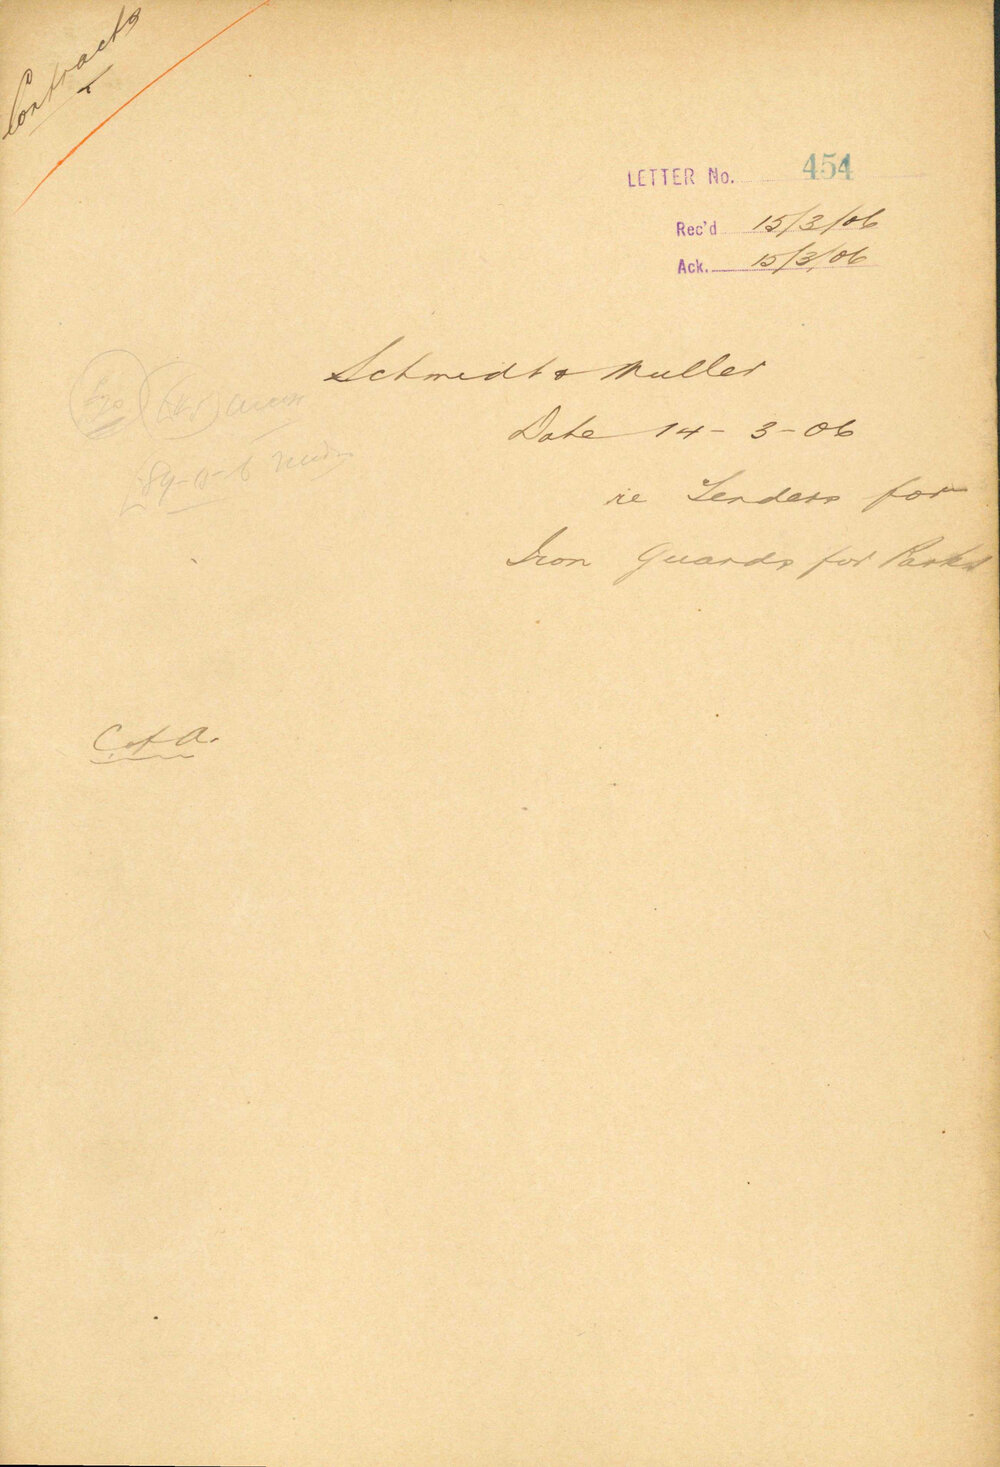 Contracts
LETTER No. 454
Rec'd 15/3/06
Ack. 15/3/06
Schmidt & Muller
Date 14-3-06
re Tenders for
Iron Guards for Parks
C of A.